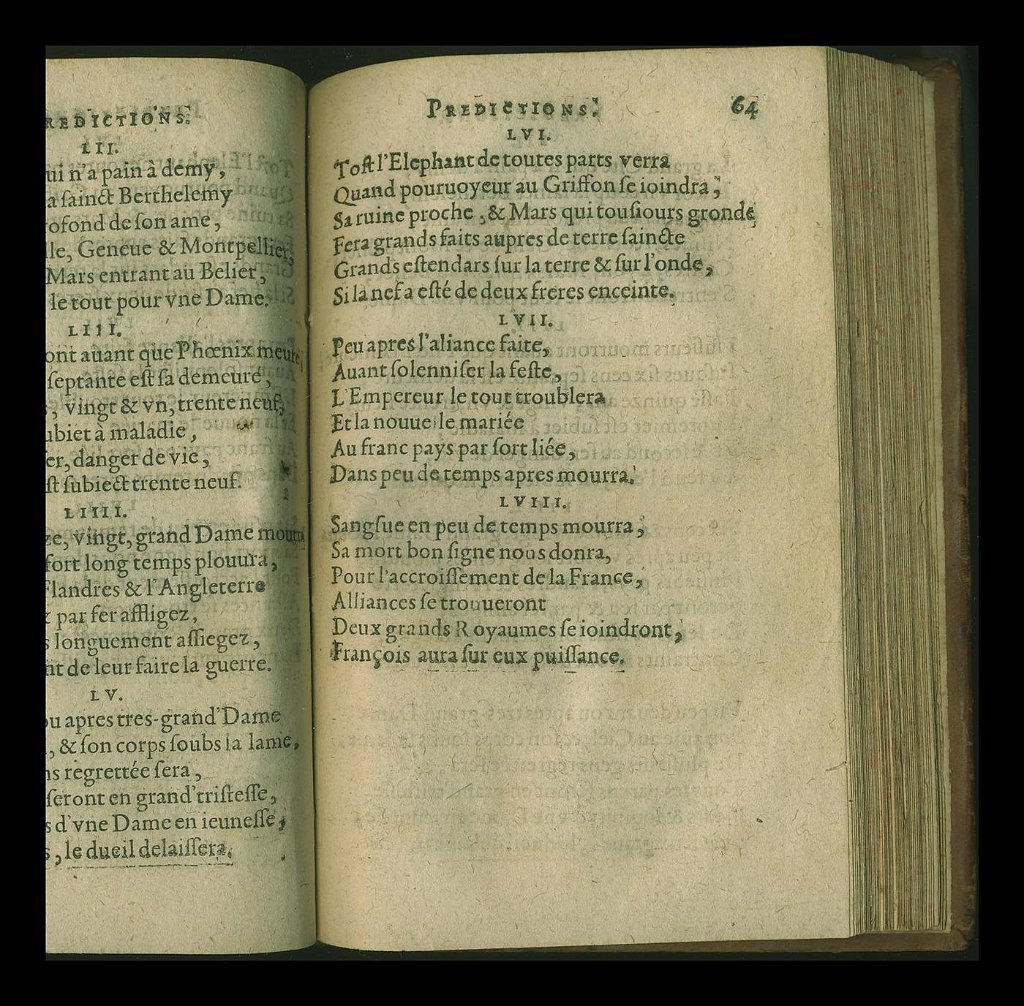 REDICTIONS.
LII.
ui n'a pain à demy,
a sainct Berthelemy
ofond de son ame,
le, Geneue & Montpellier,
Mars entrant au Belier,
le tout pour vne Dame.
LIII.
ont auant que Phœnix meure,
septante est sa demeure,
, vingt & vn, trente neuf,
ubiet à maladie,
er, danger de vie,
st subiect trente neuf.
LIIII.
ze, vingt, grand Dame mourra
fort long temps plouura,
Flandres & l'Angleterre
par fer affligez,
s longuement assiegez,
nt de leur faire la guerre.
LV.
ou apres tres-grand'Dame
, & son corps soubs la lame,
ns regrettée sera,
seront en grand'tristesse,
s d'vne Dame en ieunesse,
, le dueil delaissera.
PREDICTIONS.
64
LVI.
Tost l'Elephant de toutes parts verra
Quand pouruoyeur au Griffon se ioindra,
Sa ruine proche, & Mars qui tousiours gronde
Fera grands faits aupres de terre saincte
Grands estendars sur la terre & sur l'onde,
Si la nef a esté de deux freres enceinte.
LVII.
Peu apres l'aliance faite,
Auant solenniser la feste,
L'Empereur le tout troublera
Et la nouuelle mariée
Au franc pays par sort liée,
Dans peu de temps apres mourra.
LVIII.
Sangsue en peu de temps mourra,
Sa mort bon signe nous donra,
Pour l'accroissement de la France,
Alliances se trouueront
Deux grands Royaumes se ioindront,
François aura sur eux puissance.